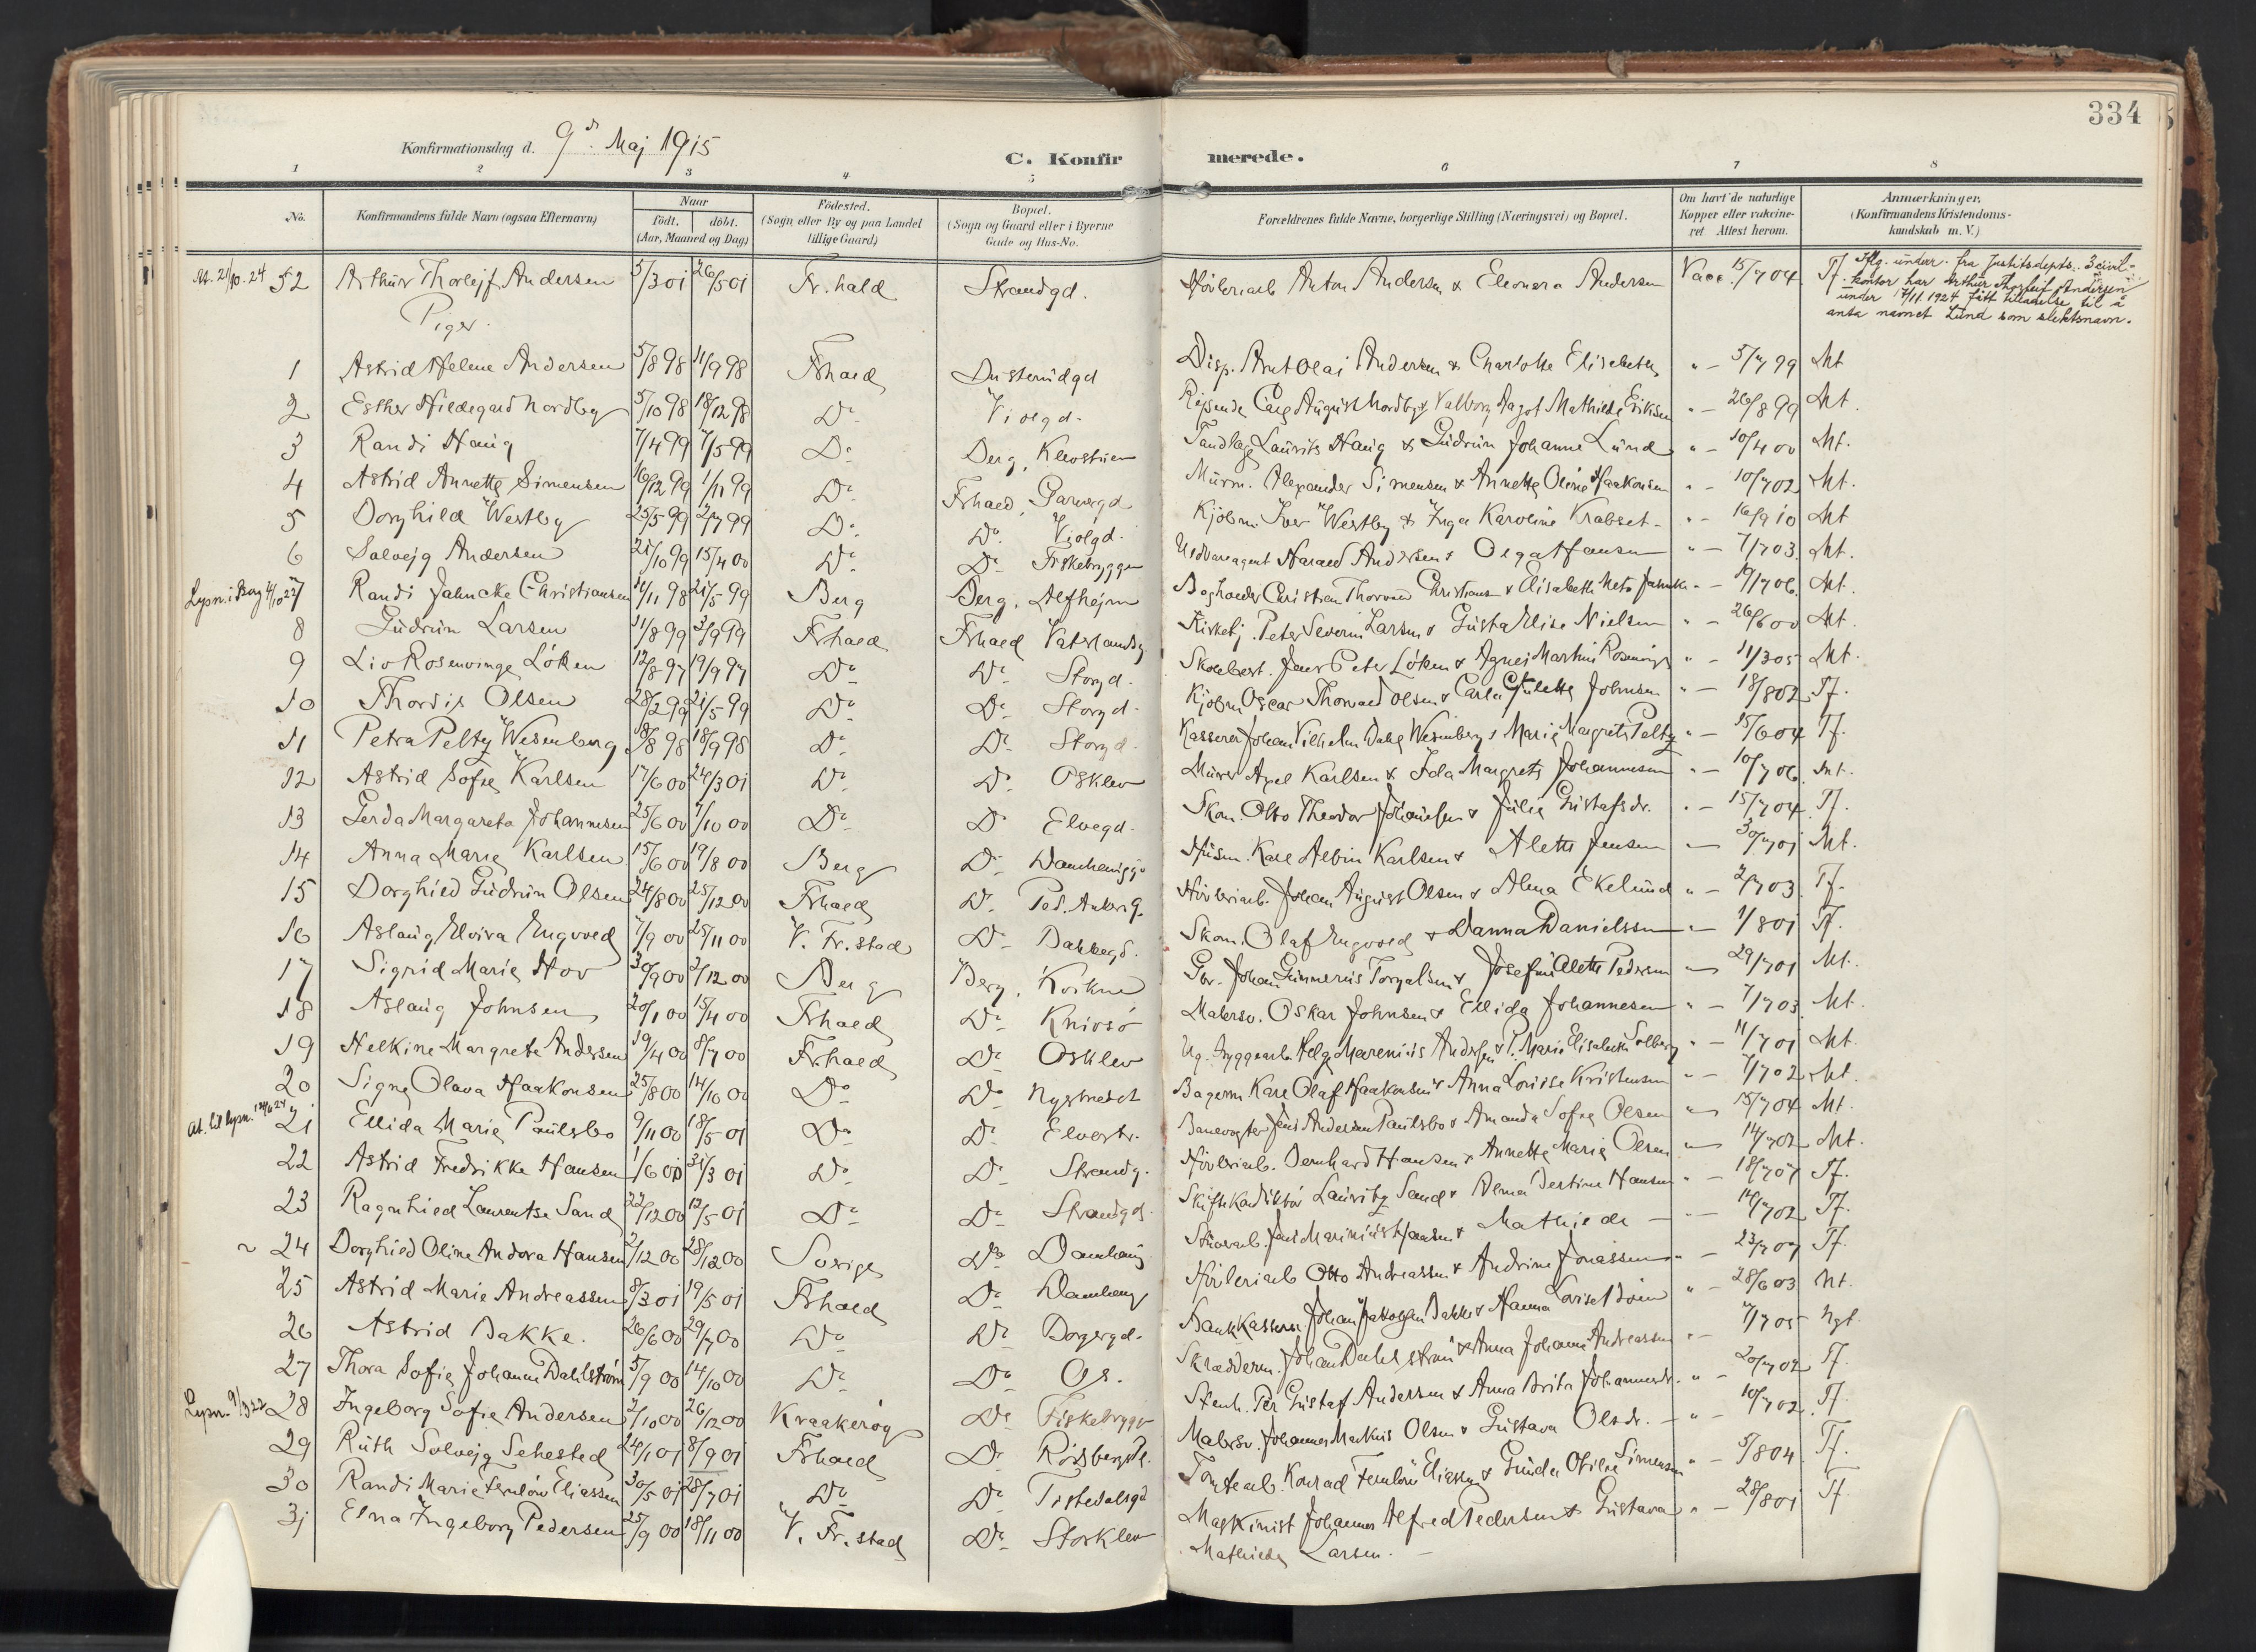 334
Konfirmationsdag d. 9d. Maj 1915
C. Konfirmerede.
1 2 3 4 5 6 7 8
No. Konfirmandens fulde Navn (ogsaa Efternavn) Naar født. døbt. (Aar, Maaned og Dag) Fødested. (Sogn eller By og paa Landet tillige Gaard) Bopæl. (Sogn og Gaard eller i Byerne Gade og Hus-No. Forældrenes fulde Navne, borgerlige Stilling (Næringsvei) og Bopæl. Om havt de naturlige Kopper eller vakcineret Attest herom. Anmærkninger. (Konfirmandens Kristendomskundskab m. V.)
At. 21/10-24 52 Arthur Thorlejf Andersen 5/3 01 26/5 01 Fr.hald Strandgd. Høvleriarb Anton Andersen & Eleonora Andersen Vacc. 15/7 04 Tf.
Iflg. underr. fra Justitsdepts. 3 civil-
kontor har Arthur Thorleif Andersen
under 7/11.1924 fått tilladelse til å
anta navnet Lund som slektsnavn.
Piger.
1 Astrid Helene Andersen 5/8 98 11/9 98 Frhald Busterudgd Disp. Arnt Olai Andersen & Charlotte Elisabeth " - 5/7 99 Mt
2 Esther Hildegard Nordby 5/10 98 18/12 98 Do Violgd. Rejsende Carl August Nordby & Valborg Aagot Mathilde Eriksen " - 26/8 99 Mt.
3 Randi Haug 7/4 99 7/5 99 Do Berg, Tandlæge Laurits Haug & Gudrun Johanne Lund " - 10/4 00 Mt.
4 Astrid Annette Simensen 16/12 99 1/11 99 Do Frhald, Garvergd Murm. Alexander Simensen & Annette Oline Haakonsen " - 10/7 02 Mt.
5 Borghild Westby 25/5 99 2/7 99 Do Do Violgd. Kjøbm. Iver Westby & Inga Karoline Krabset " - 16/9 10 Mt
6 Solvejg Andersen 21/10 99 15/4 00 Do Do Fiskebryggen Uldvareagent Harald Andersen & Olga Hansen " - 7/7 03. Mt.
Lysn. i Berg 4/10 27 7 Randi Jahncke Christiansen 11/11 98 21/5 99 Berg Berg, Alfhejm Bogholder Christian Thorvald Christiansen & Elisabeth Meta Jahncke - 19/7 06. Mt.
8 Gudrun Larsen 11/8 99 3/9 99 Frhald Frhald Vaterlandsg Kirketj. Peter Severin Larsen & Gusta Elise Nielsen " - 26/6 00 Mt.
9 Liv Rosenvinge Løken 12/8 97 19/9 97 Do Do Storgd. Skolebest. Jens Peter Løken & Agnes Martine Rosenvinge " - 11/3 05 Mt.
10 Thordis Olsen 28/2 99 21/5 99 Do Do Storgd. Kjøbm Oscar Thorvald Olsen & Carla Julette Johnsen " - 18/8 02 Tf.
11 Petra Peltz Wesenberg 18/8 98 18/9 98 Do Do Storgd. Kasserer Johan Vilhelm Dahl Wesenberg & Marie Margrete Peltz " - 15/6 04 Tf.
12 Astrid Sofie Karlsen 17/6 00 24/3 01 Do Do Osklev Murer Axel Karlsen & Ida Margrete Johannesen " - 10/7 06. Mt.
13 Gerda Margareta Johannesen 25/6 00 7/10 00 Do Do Elvegd. Skom. Otto Theodor Johannesen & Julie Gustafsdr. " - 15/7 04 Tf.
14 Anna Marie Karlsen 15/6 00 19/8 00 Berg Do Damhaugg. Husm. Karl Albin Karlsen & Alette Jensen - 30/7 01 Mt.
15 Borghild Gudrun Olsen 24/8 00 25/12 00 Frhald Do Ped. Ankersg. Høvleriarb. Johan August Olsen & Alma Ekelund " - 2/7 03 Tf.
16 Aslaug Elvira Engvold 7/9 00 25/11 00 V. Fr.stad Do Bakkegd. Skom. Olaf Engvold & Hanna Danielssen - 1/8 01 Tf.
17 Sigrid Marie Hov 30/9 00 2/12 00 Berg Berg, Korkne Gbr. Johan Gunnerius Torgalsen & Josefine Alette Pedersen - 29/7 01 Mt.
18 Aslaug Johnsen 20/1 00 15/4 00 Frhald Do Knivsø Malersv. Oskar Johnsen & Ellida Johannesen " - 7/7 03. Mt.
19 Helkine Margrete Andersen 19/4 00 8/7 00 Frhald Do Osklev Ug. Byggearb. Helge Marenius Andersen & P. Marie Elisabeth Solberg " - 11/7 01 Mt.
20 Signe Olava Haakonsen 25/8 00 14/10 00 Do Do Bagerm Karl Olaf Haakonsen & Anna Louise Kristensen " - 7/7 02 Mt.
At. til lysn. 21 Ellida Marie Paulsbo 9/11 00 18/5 01 Do Do Elvestr. Banevogter Jens Andersen Paulsbo & Amanda Sofie Olsen " - 15/7 04 Mt.
22 Astrid Fredrikke Hansen 1/6 00 31/3 01 Do Do Strandg. Høvleriarb. Bernhard Hansen & Annette Marie Olsen - 14/7 02 Mt.
23 Ragnhild Laurentse Sand 22/12 00 12/5 01 Do Do Strandgd. Lauritz Sand & Alma Bertine Hansen " - 18/7 07 Tf.
~ 24 Borghild Oline Andora Hansen 2/12 00 28/12 00 Sverige Do Damhaug Jens Marinius Hansen & Mathilde - 14/7 02 Tf.
25 Astrid Marie Andreassen 8/3 01 19/5 01 Frhald Do Damhaug Høvleriarb Otto Andreassen & Andrine Jonassen " - 23/7 07 Tf.
26 Astrid Bakke. 26/6 00 29/7 00 Do Do Borgergd. Bankkasserer Johan Jakobsen Bakke & Hanna Lovise " - 28/6 03 Mt.
27 Thora Sofie Johanne Dahlström 5/9 00 14/10 00 Do Do Os. Skrædderm. Johan Dahlström & Anna Johanne Andreassen " - 7/7 05 Ngt.
Lysn. 9/3 22 28 Ingeborg Sofie Andersen 2/10 00 26/12 00 Kraakerøy Do Fiskebrygg Stenh. Per Gustaf Andersen & Anna Brita Johannesdr. " - 20/7 02 Tf.
29 Ruth Solvejg Sehested 24/1 01 8/9 01 Frhald Do Rødsbergpl. Malersv. Johannes Markus Olsen & Gustava Olsdr. - " - 10/7 02. Tf.
30 Randi Marie Fernlöw Eliassen 30/5 01 28/7 01 Do Do Tistedalsgd Tomtearb. Konrad Fernlöw Eliassen & Gunda Otilie Simensen " - 5/8 04 Tf.
31 Elna Ingeborg Pedersen 25/9 00 18/11 00 V. Fr.stad Do Storklev Maskinist Johannes Alfred Pedersen & Gustava " - 28/8 01 Tf
Mathilde Larsen. -